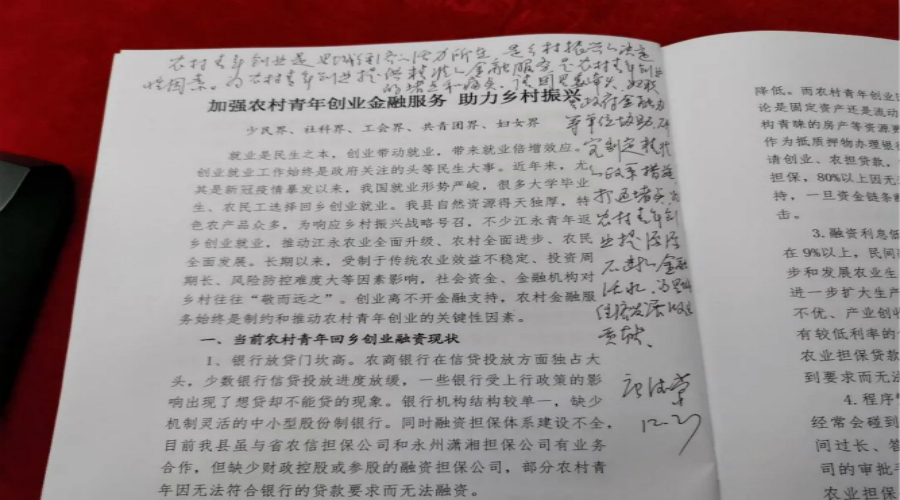 农村青年创业是
是乡村振兴的决定
性因素。为农村青年创业提供精准的金融服务是农村青年创业
加强农村青年创业金融服务 助力乡村振兴
少民界、社科界、工会界、共青团界、妇女界
就业是民生之本，创业带动就业，带来就业倍增效应。
创业就业工作始终是政府关注的头等民生大事。近年来，尤
其是新冠疫情暴发以来，我国就业形势严峻，很多大学毕业
生、农民工选择回乡创业就业。我县自然资源得天独厚，特
色农产品众多，为响应乡村振兴战略号召，不少江永青年返
乡创业就业，推动江永农业全面升级、农村全面进步、农民
全面发展。长期以来，受制于传统农业效益不稳定、投资周
期长、风险防控难度大等因素影响，社会资金、金融机构对
乡村往往“敬而远之”。创业离不开金融支持，农村金融服
务始终是制约和推动农村青年创业的关键性因素。
一、当前农村青年回乡创业融资现状
1、银行放贷门坎高。农商银行在信贷投放方面独占大
头，少数银行信贷投放进度放缓，一些银行受上行政策的影
响出现了想贷却不能贷的现象。银行机构结构较单一，缺少
机制灵活的中小型股份制银行。同时融资担保体系建设不全，
目前我县虽与省农信担保公司和永州潇湘担保公司有业务
合作，但缺少财政控股或参股的融资担保公司，部分农村青
年因无法符合银行的贷款要求而无法融资。
等单位协助，研
究制定精准
的改革措施
打通堵点，为
农村青年创
业提供源源
不断的金融
活水，为
经济发展做出
贡献。
12.23
降低。而农村青年创业
论是固定资产还是流动
构青睐的房产等资源更
作为抵质押物办理银行
请创业、农担贷款，
担保，80%以上因无
持，一旦资金链条断
击。
3.融资利息低
在9%以上，民间
步和发展农业生
进一步扩大生产
不优、产业创收
有较低利率的
农业担保贷款
到要求而无法
4.程序
经常会碰到
问过长、答
司的审批手
农业担保